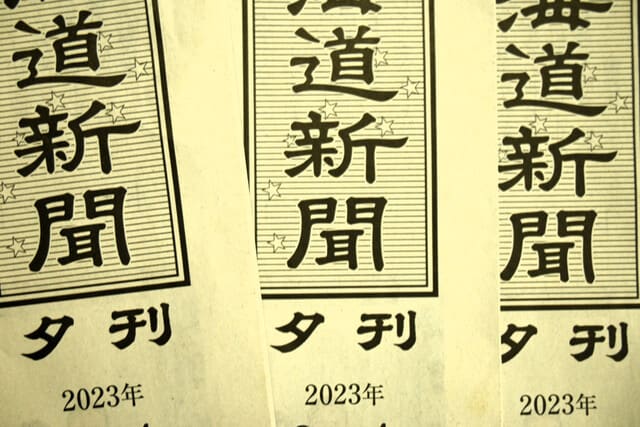 道新聞
夕刊
2023年
道新聞
夕刊
2023年
海道新聞
夕刊
2023年